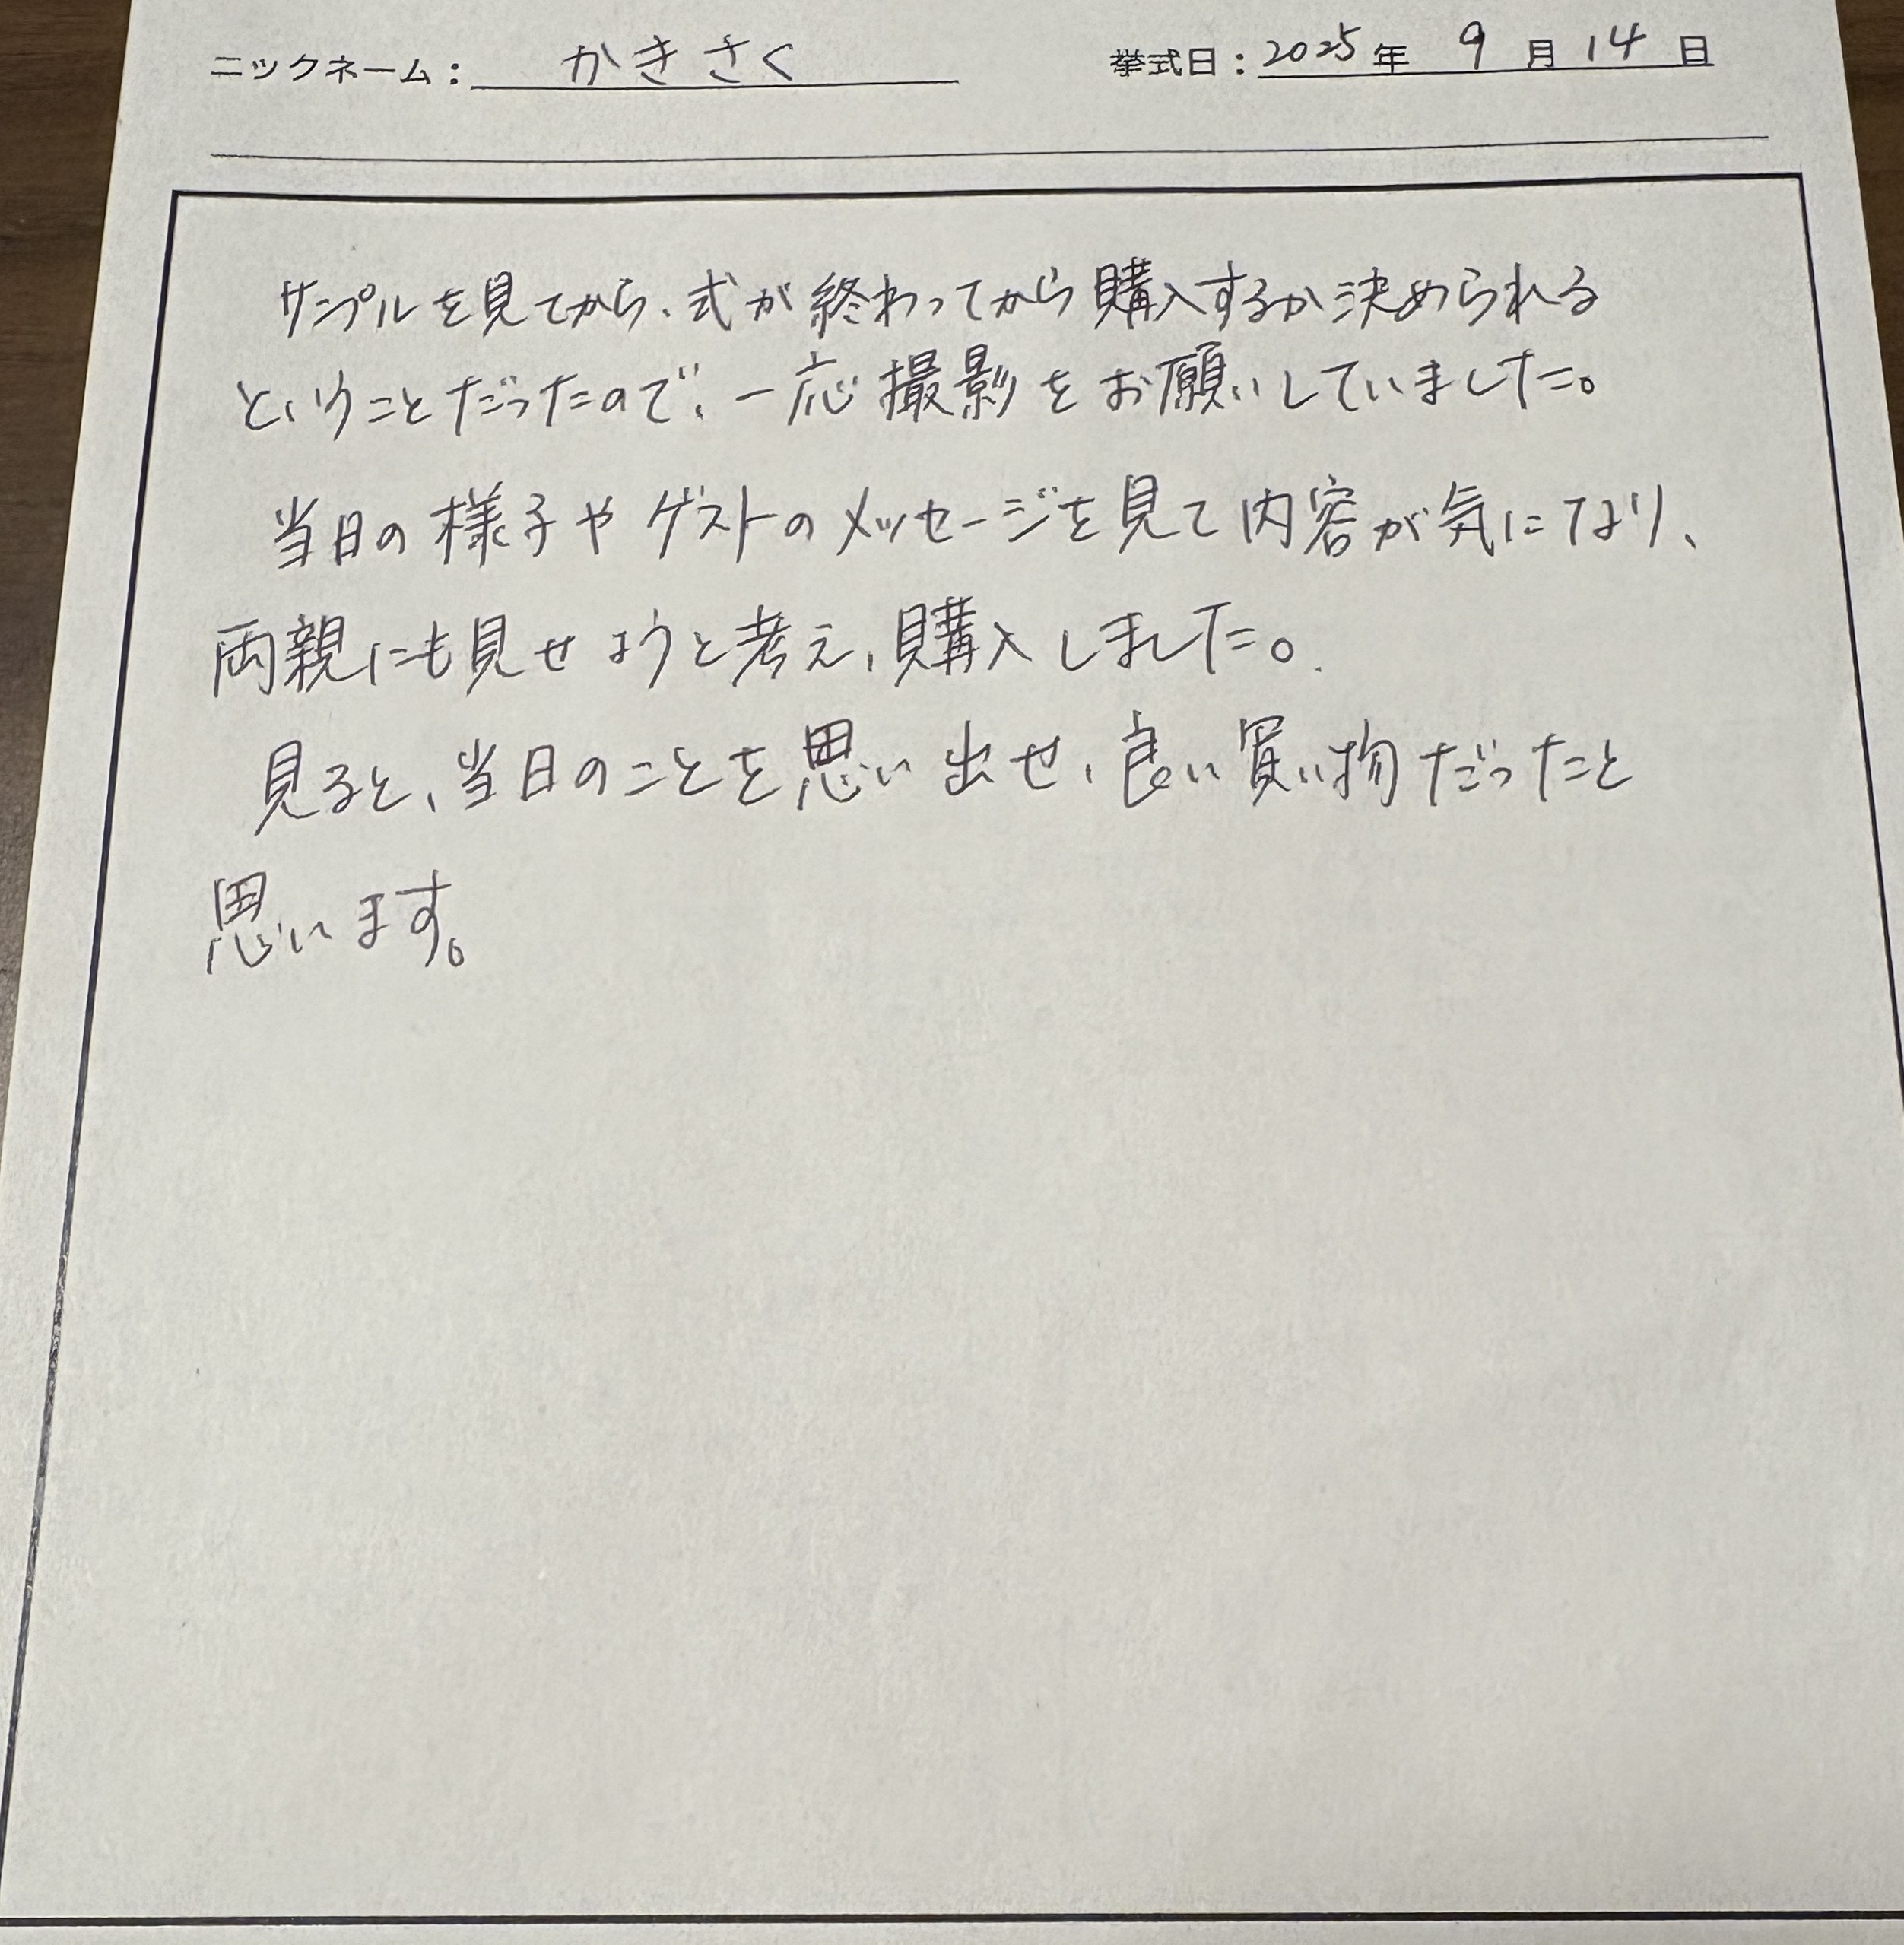 ニックネーム： かきさく 挙式日：2025年 9月14日
サンプルを見てから、式が終わってから購入するか決められる
ということだったので、一応撮影をお願いしていました。
当日の様子やゲストのメッセージを見て内容が気になり、
両親にも見せようと考え、購入しました。
見ると、当日のことを思い出せ、良い買い物だったと
思います。